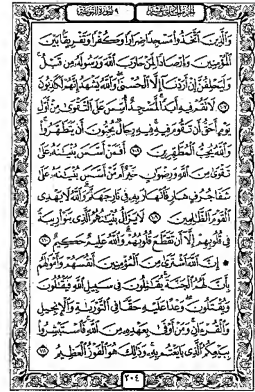 الجزء الحادي عشر ٩ سورة التوبة
وَٱلَّذِينَ ٱتَّخَذُوا۟ مَسْجِدًا ضِرَارًا وَكُفْرًا وَتَفْرِيقًۢا بَيْنَ
ٱلْمُؤْمِنِينَ وَإِرْصَادًا لِّمَنْ حَارَبَ ٱللَّهَ وَرَسُولَهُۥ مِن قَبْلُ
وَلَيَحْلِفُنَّ إِنْ أَرَدْنَآ إِلَّا ٱلْحُسْنَىٰ وَٱللَّهُ يَشْهَدُ إِنَّهُمْ لَكَٰذِبُونَ
١٠٧ لَا تَقُمْ فِيهِ أَبَدًا لَّمَسْجِدٌ أُسِّسَ عَلَى ٱلتَّقْوَىٰ مِنْ أَوَّلِ
يَوْمٍ أَحَقُّ أَن تَقُومَ فِيهِ فِيهِ رِجَالٌ يُحِبُّونَ أَن يَتَطَهَّرُوا۟
وَٱللَّهُ يُحِبُّ ٱلْمُطَّهِّرِينَ ١٠٨ أَفَمَنْ أَسَّسَ بُنْيَٰنَهُۥ عَلَىٰ
تَقْوَىٰ مِنَ ٱللَّهِ وَرِضْوَٰنٍ خَيْرٌ أَم مَّنْ أَسَّسَ بُنْيَٰنَهُۥ عَلَىٰ
شَفَا جُرُفٍ هَارٍ فَٱنْهَارَ بِهِۦ فِى نَارِ جَهَنَّمَ وَٱللَّهُ لَا يَهْدِى
ٱلْقَوْمَ ٱلظَّٰلِمِينَ ١٠٩ لَا يَزَالُ بُنْيَٰنُهُمُ ٱلَّذِى بَنَوْا۟ رِيبَةً
فِى قُلُوبِهِمْ إِلَّآ أَن تَقَطَّعَ قُلُوبُهُمْ وَٱللَّهُ عَلِيمٌ حَكِيمٌ ١١٠
۞ إِنَّ ٱللَّهَ ٱشْتَرَىٰ مِنَ ٱلْمُؤْمِنِينَ أَنفُسَهُمْ وَأَمْوَٰلَهُم
بِأَنَّ لَهُمُ ٱلْجَنَّةَ يُقَٰتِلُونَ فِى سَبِيلِ ٱللَّهِ فَيَقْتُلُونَ
وَيُقْتَلُونَ وَعْدًا عَلَيْهِ حَقًّا فِى ٱلتَّوْرَىٰةِ وَٱلْإِنجِيلِ
وَٱلْقُرْءَانِ وَمَنْ أَوْفَىٰ بِعَهْدِهِۦ مِنَ ٱللَّهِ فَٱسْتَبْشِرُوا۟
بِبَيْعِكُمُ ٱلَّذِى بَايَعْتُم بِهِۦ وَذَٰلِكَ هُوَ ٱلْفَوْزُ ٱلْعَظِيمُ ١١١
٢٠٤